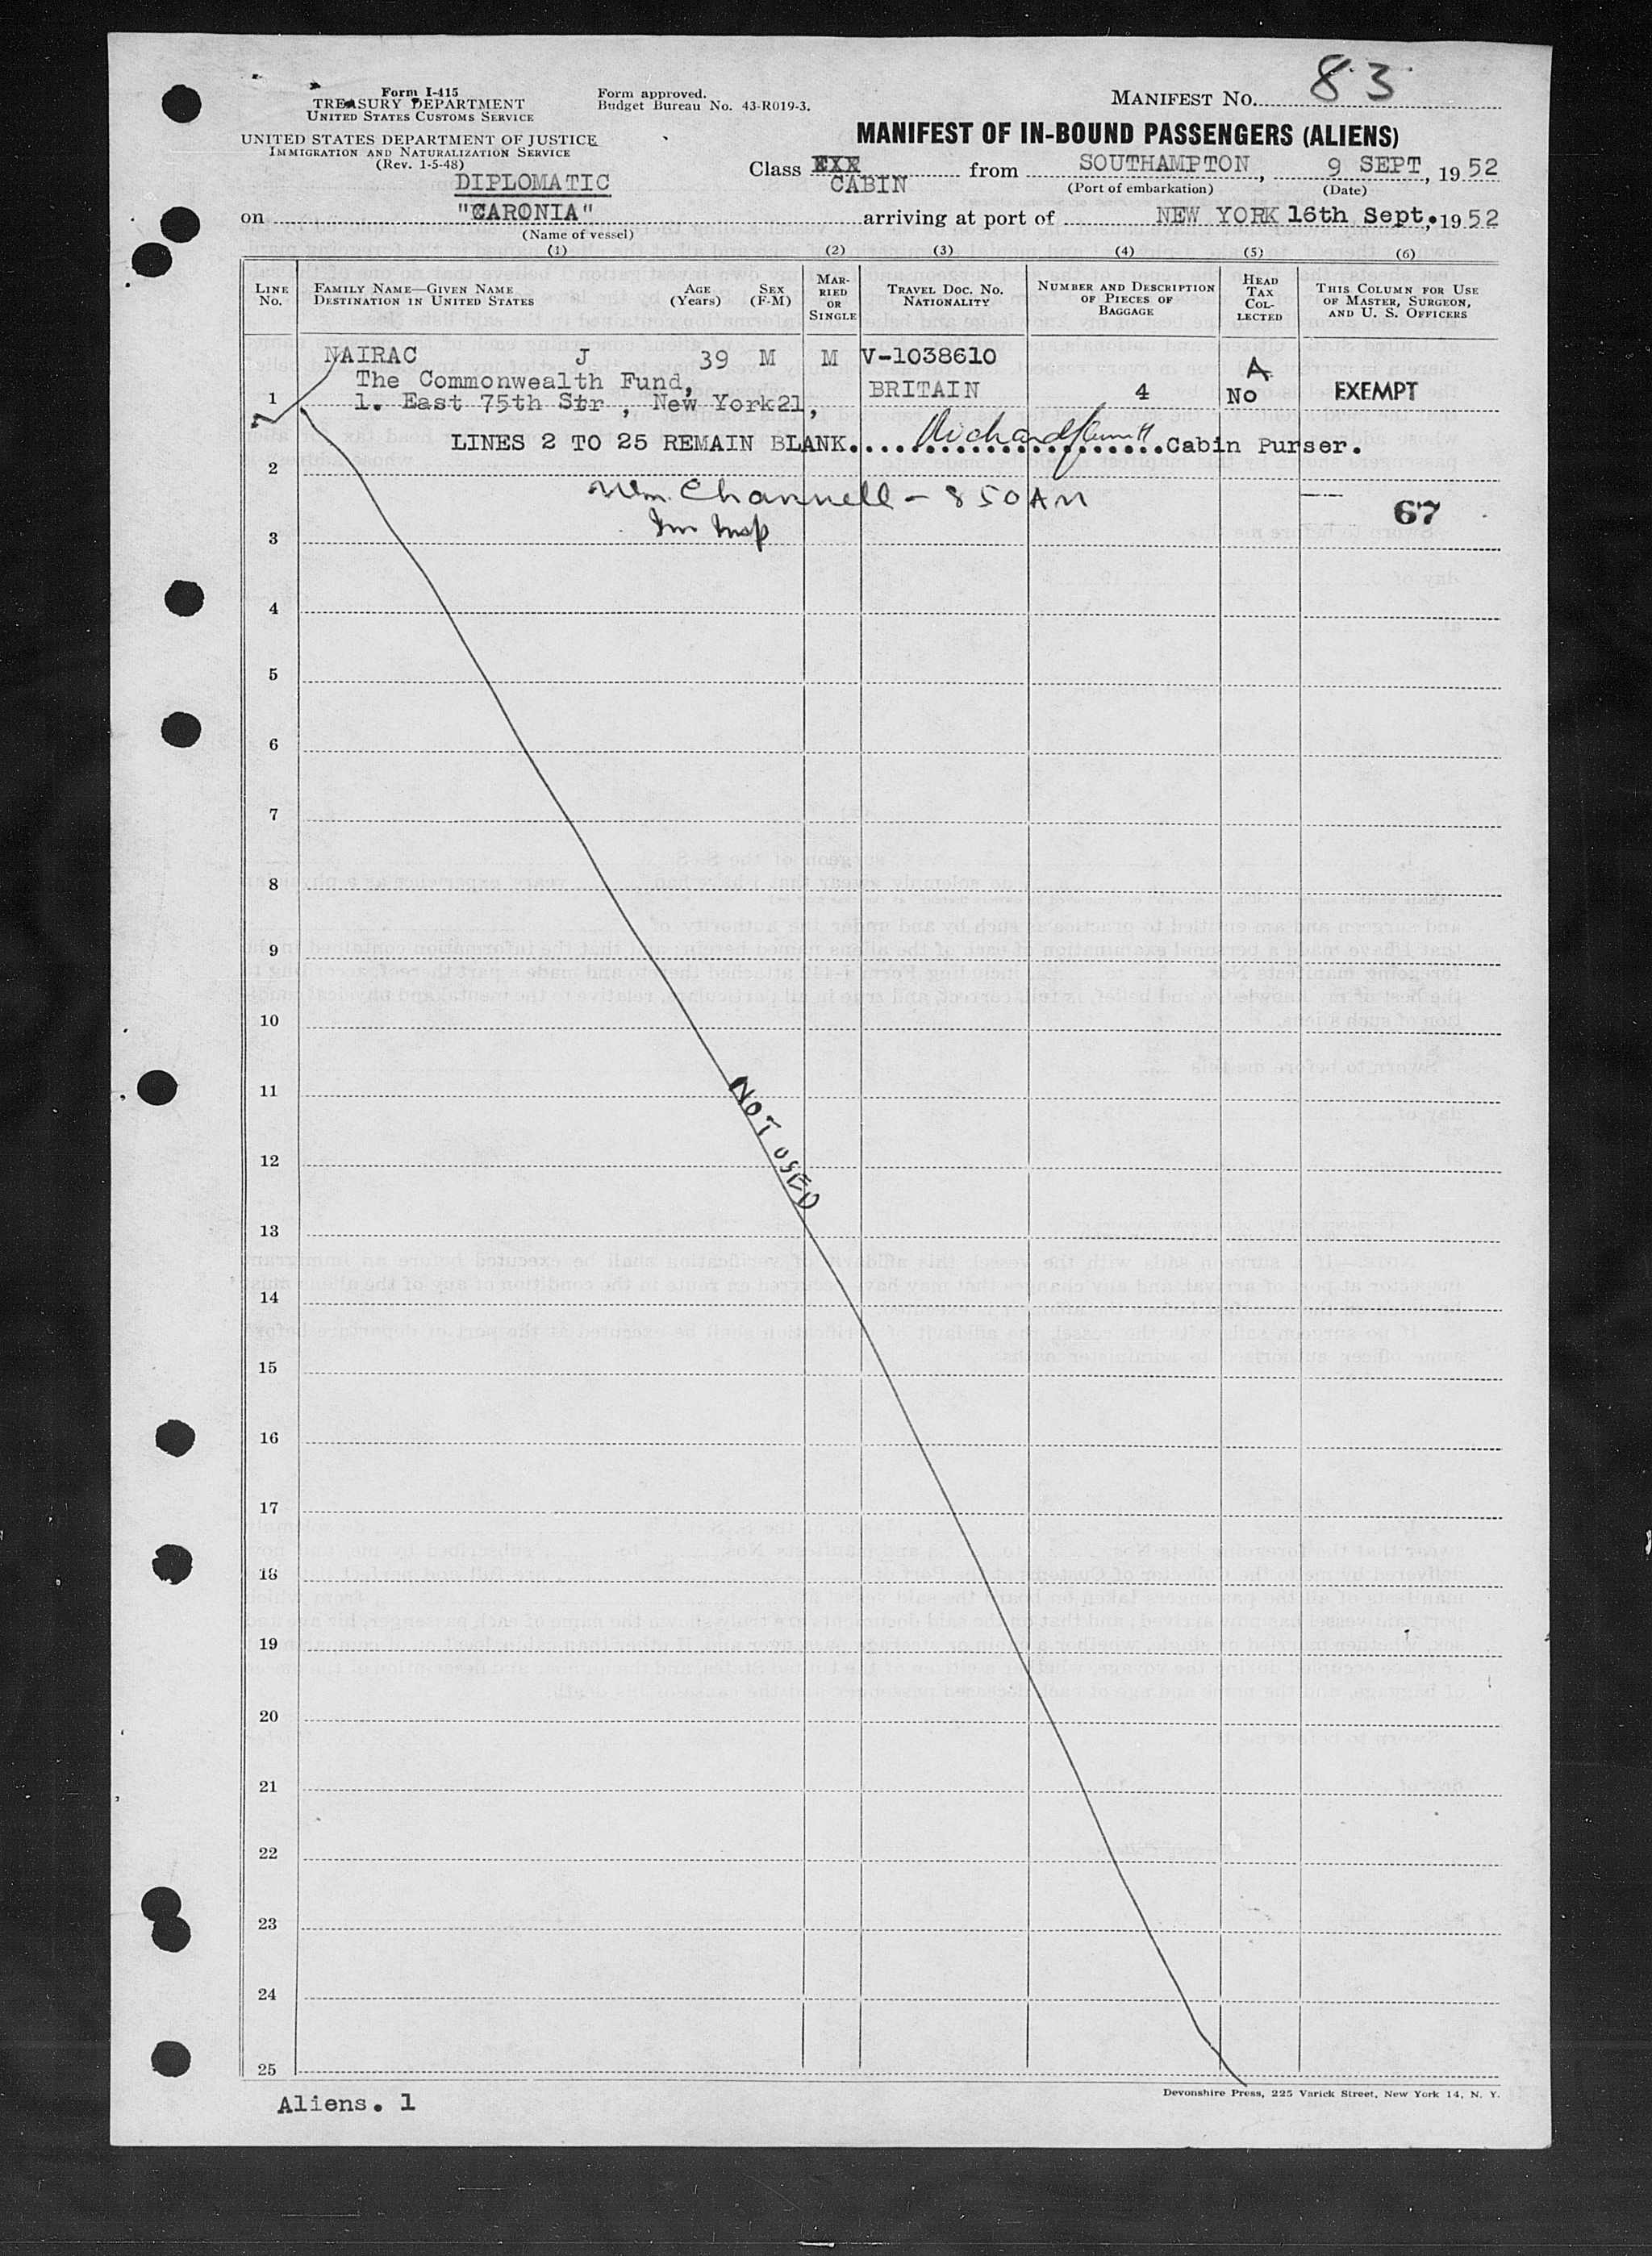 83
Form I-415
TREASURY DEPARTMENT
UNITED STATES CUSTOMS SERVICE
Form approved.
Budget Bureau No. 43-R019-3.
MANIFEST NO.
UNITED STATES DEPARTMENT OF JUSTICE
IMMIGRATION AND NATURALIZATION SERVICE
(Rev. 1-5-48)
MANIFEST OF IN-BOUND PASSENGERS (ALIENS)
DIPLOMATIC
Class CABIN from SOUTHAMPTON, 9 SEPT, 1952
(Port of embarkation) (Date)
on "CARONIA" arriving at port of NEW YORK 16th Sept. 1952
(Name of vessel)
(1) (2) (3) (4) (5) (6)
LINE No. FAMILY NAME—GIVEN NAME DESTINATION IN UNITED STATES AGE (Years) SEX (F-M) MARRIED OR SINGLE TRAVEL DOC. NO. NATIONALITY NUMBER AND DESCRIPTION OF PIECES OF BAGGAGE HEAD TAX COLLECTED THIS COLUMN FOR USE OF MASTER, SURGEON, AND U. S. OFFICERS
NAIRAC J 39 M M V-1038610
The Commonwealth Fund, BRITAIN 4 A No EXEMPT
1 1. East 75th Str, New York 21,
LINES 2 TO 25 REMAIN BLANK.... Richard ....Cabin Purser.
2
Wm. Channell - 850 AM
67
Im Insp
3
4
5
6
7
8
9
10
11
NOT USED
12
13
14
15
16
17
18
19
20
21
22
23
24
25
Aliens. 1
Devonshire Press, 225 Varick Street, New York 14, N. Y.